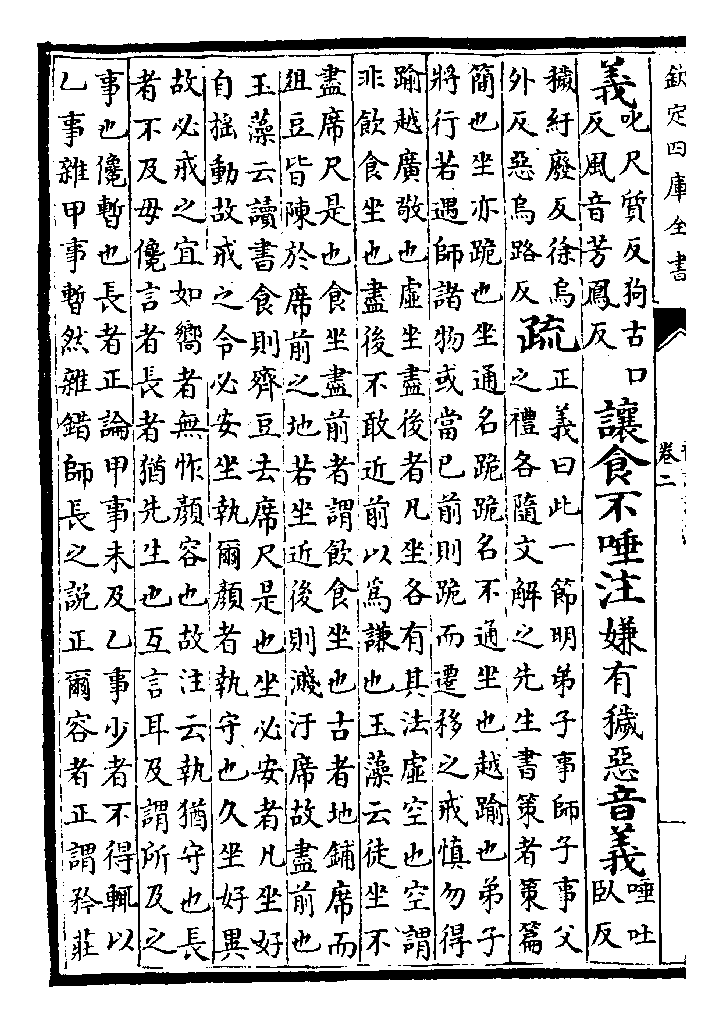 欽定四庫全書
卷二
義
叱尺質反狗古口
反風音芳鳳反
讓食不唾注嫌有穢惡音義
唾吐
臥反
穢紆廢反徐烏
外反惡烏路反
疏
正義曰此一節明弟子事師子事父
之禮各隨文解之先生書策者策篇
簡也坐亦跪也坐通名跪跪名不通坐也越踰也弟子
將行若遇師諸物或當已前則跪而遷移之戒慎勿得
踰越廣敬也虛坐盡後者凡坐各有其法虛空也空謂
非飲食坐也盡後不敢近前以為謙也玉藻云徒坐不
盡席尺是也食坐盡前者謂飲食坐也古者地鋪席而
俎豆皆陳於席前之地若坐近後則濺汙席故盡前也
玉藻云讀書食則齊豆去席尺是也坐必安者凡坐好
自搖動故戒之令必安坐執爾顏者執守也久坐好異
故必戒之宜如嚮者無怍顏容也故注云執猶守也長
者不及毋儳言者長者猶先生也互言耳及謂所及之
事也儳暫也長者正論甲事未及乙事少者不得輒以
乙事雜甲事暫然雜錯師長之說正爾容者正謂矜莊